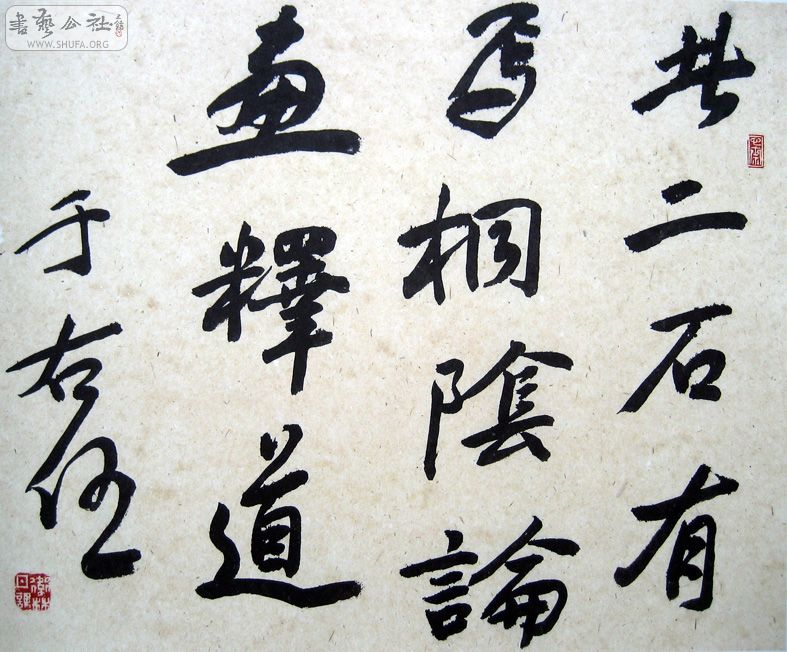 書藝公社
WWW.SHUFA.ORG
此二石有
桐陰論
畫釋道
于右任